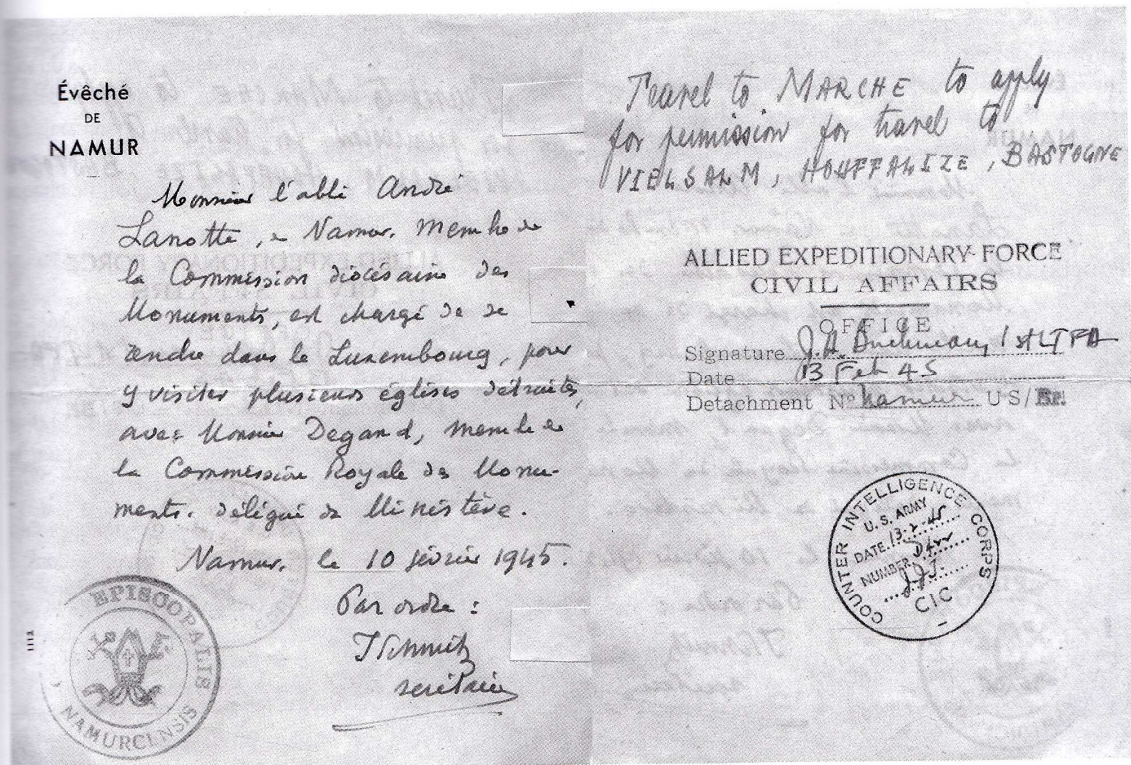 Évêché
DE
NAMUR
Monsieur l'abbé André
Lanotte, à Namur, membre de
la Commission diocésaine des
Monuments, est chargé de se
rendre dans le Luxembourg, pour
y visiter plusieurs églises détruites,
avec Monsieur Degand, membre de
la Commission Royale des Monu-
ments. délégué du Ministère.
Namur, le 10 février 1945.
Par ordre :
secrétaire
EPISCOPALIS
NAMURCENSIS
Travel to MARCHE to apply
for permission for travel to
VIELSALM, HOUFFALIZE, BASTOGNE
ALLIED EXPEDITIONARY FORCE
CIVIL AFFAIRS
OFFICE
Signature J.A. 1st LT FA
Date 13 Feb 45
Detachment Nº Namur US/
COUNTER INTELLIGENCE CORPS
U.S. ARMY
DATE 13-2-45
NUMBER
CIC